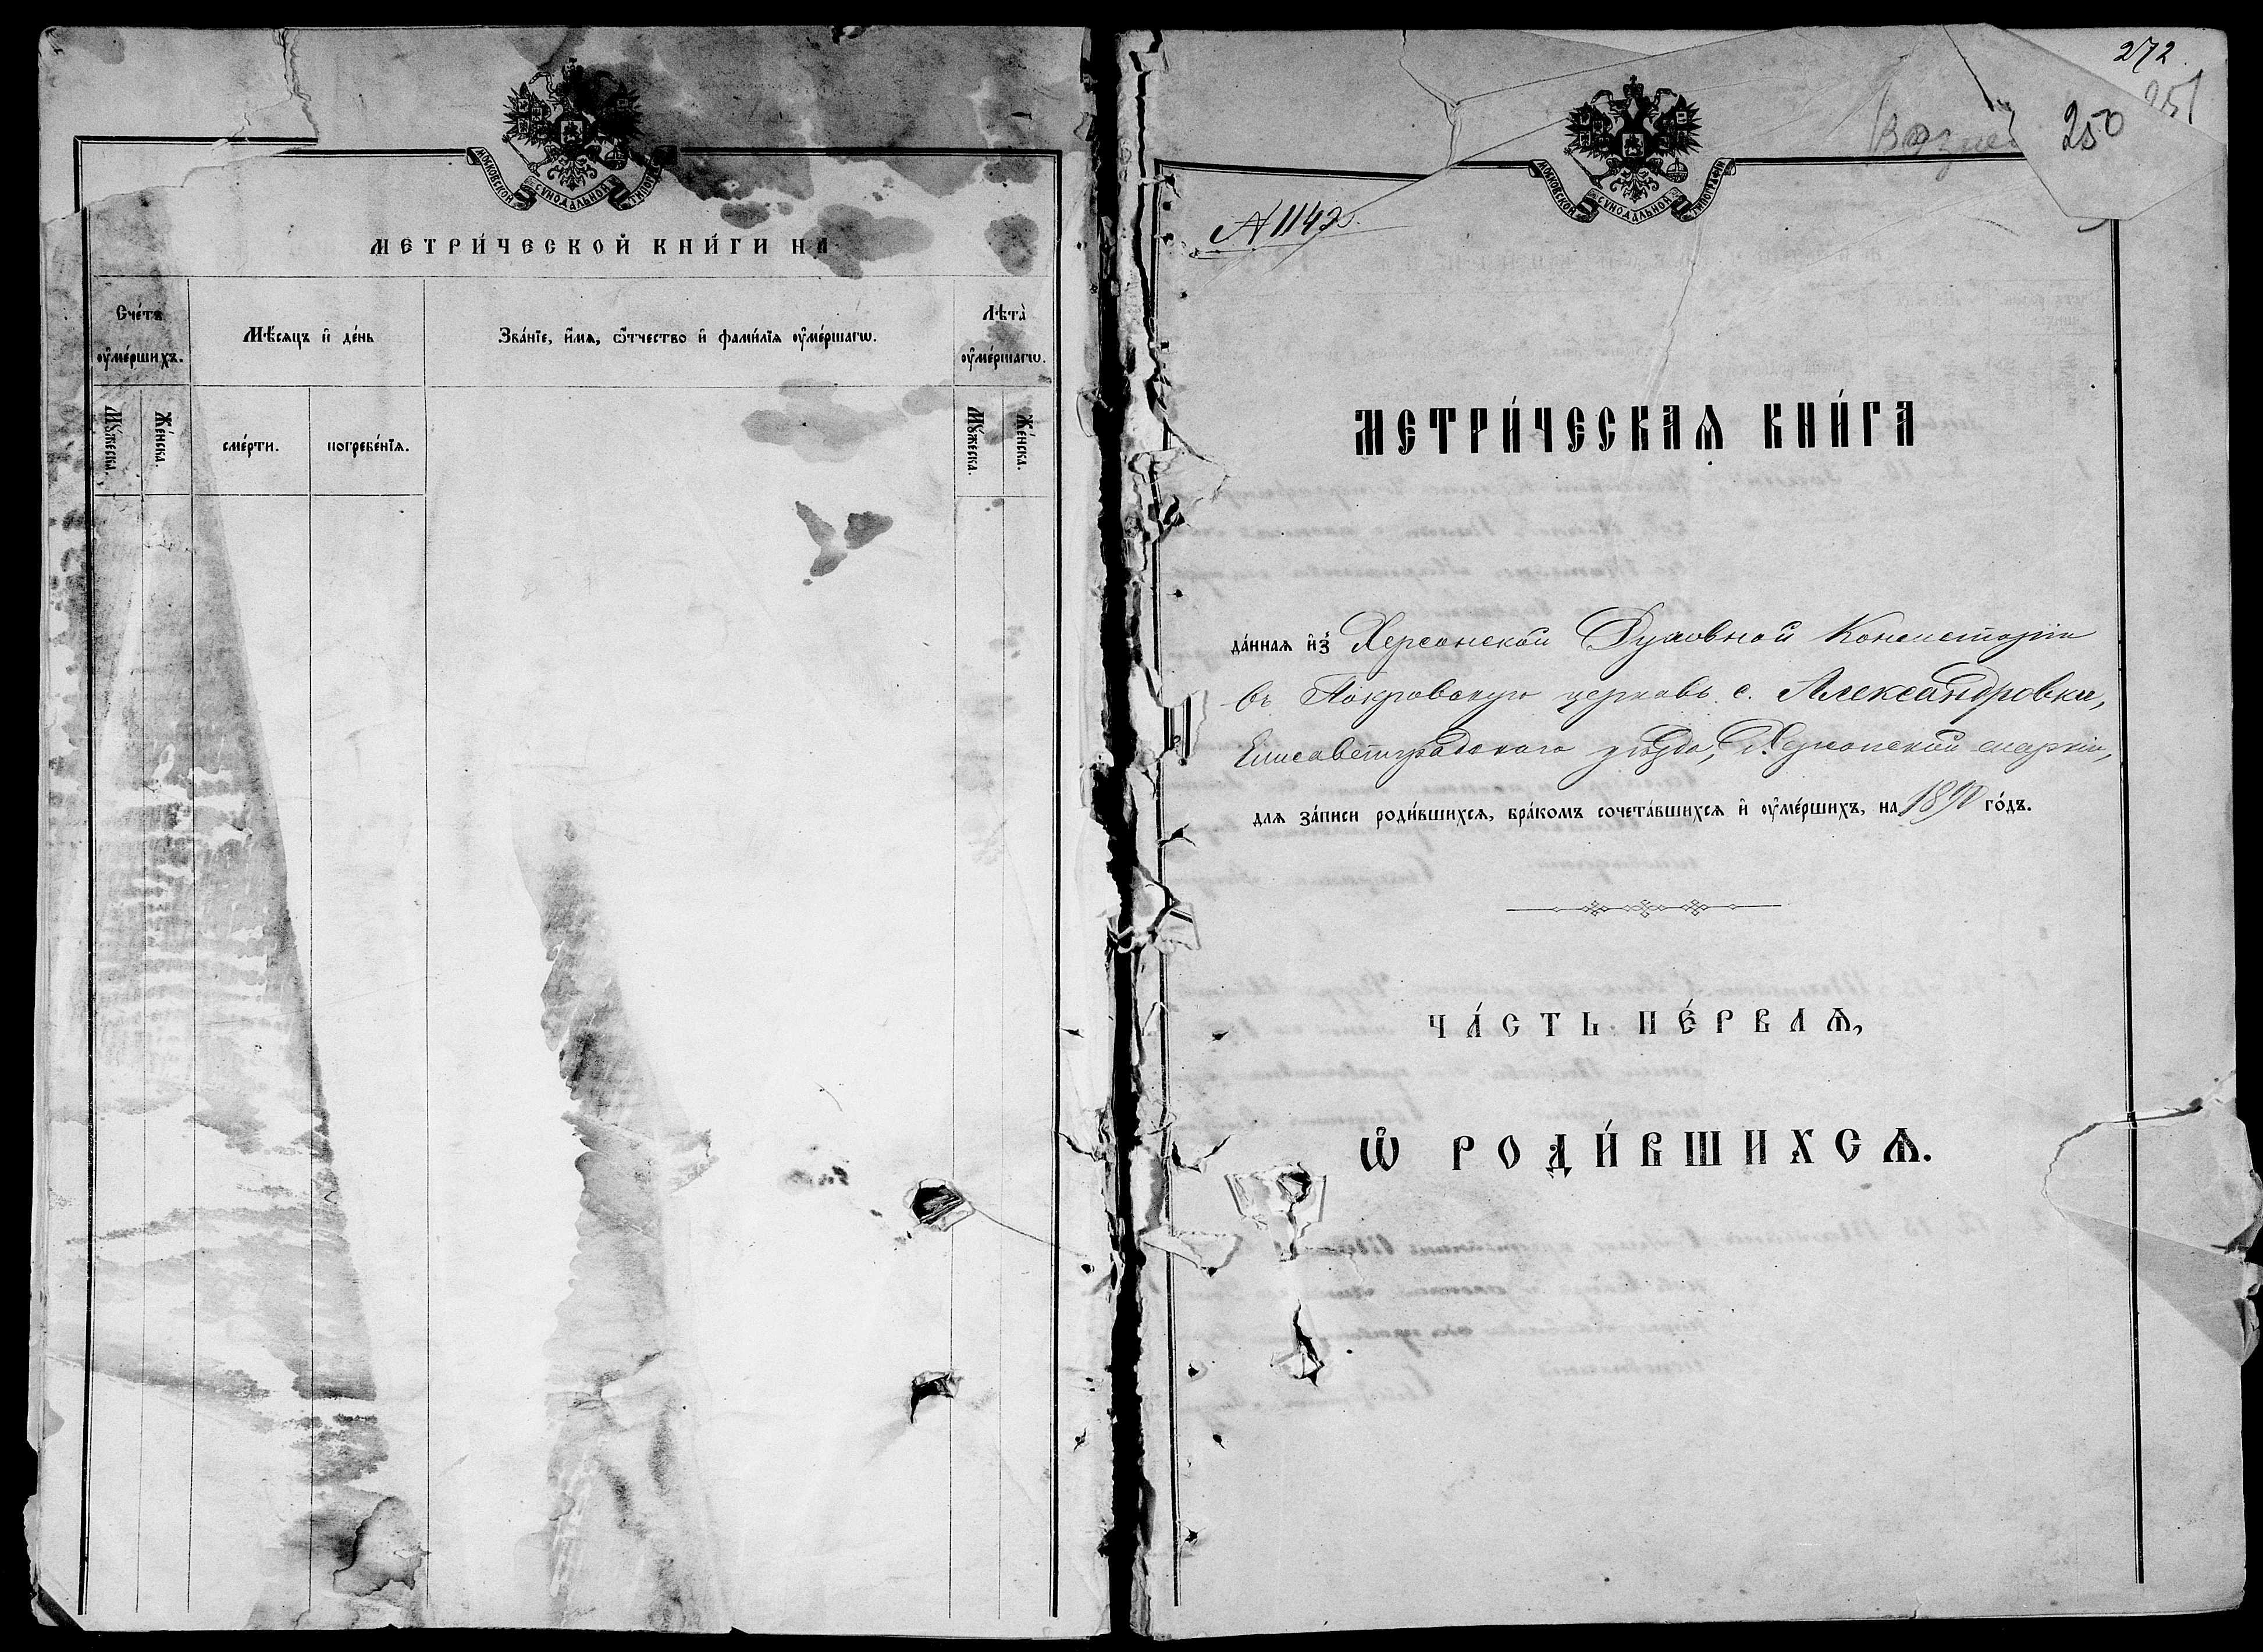 МОСКОВСКОЙ СѴНОДАЛЬНОЙ ТИПОГРАФІИ
МЕТРИ́ЧЕСКОЙ КНИ́ГИ НА
Сче́тъ ᲂу҆ме́ршихъ.
Мѣ́сяцъ и҆ де́нь
Зва́нїе, и҆́мѧ, ѻ҆́тчество и҆ фами́лїѧ ᲂу҆ме́ршагѡ.
Лѣ́та ᲂу҆ме́ршагѡ.
Мꙋ́жеска.
Же́нска.
сме́рти.
погребе́нїѧ.
Мꙋ́жеска.
Же́нска.
272
251
250
МОСКОВСКОЙ СѴНОДАЛЬНОЙ ТИПОГРАФІИ
МЕТРИ́ЧЕСКАѦ КНИ́ГА
да́ннаѧ и҆з̾ Херсонской Духовной Консисторіи
въ Покровскую церковь с. Александровки,
Елисаветградскаго уѣзда, Херсонской епархіи,
длѧ за́писи роди́вшихсѧ, бра́комъ сочета́вшихсѧ и҆ ᲂу҆ме́ршихъ, на 1890 го́дъ.
ЧА́СТЬ ПЕ́РВАѦ,
Ѡ҆ РОДИ́ВШИХСѦ.